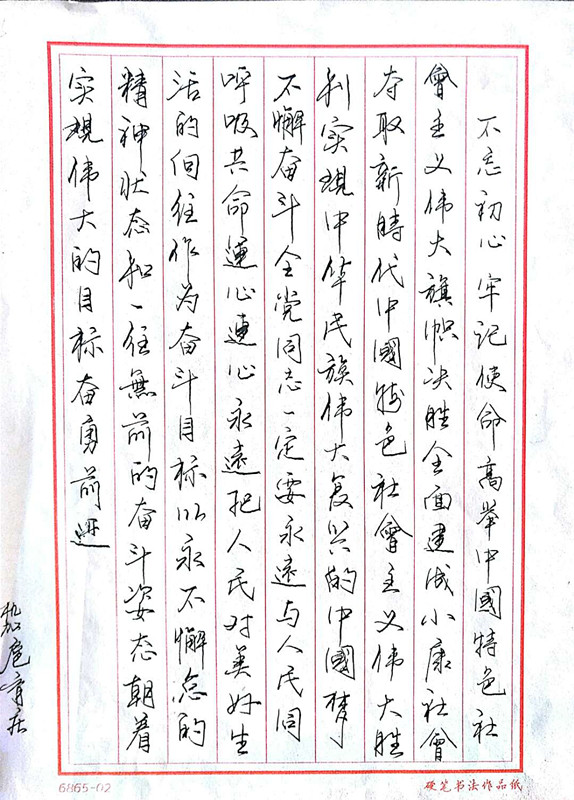 不忘初心牢记使命高举中國特色社
會主义伟大旗帜决胜全面建成小康社會
夺取新時代中國特色社會主义伟大胜
利实現中华民族伟大复兴的中國梦
不懈奋斗全党同志一定要永遠与人民同
呼吸共命運心連心永遠把人民对美好生
活的向往作为奋斗目标以永不懈怠的
精神状态和一往無前的奋斗姿态朝着
实現伟大的目标奋勇前进
6865-02
硬笔书法作品纸